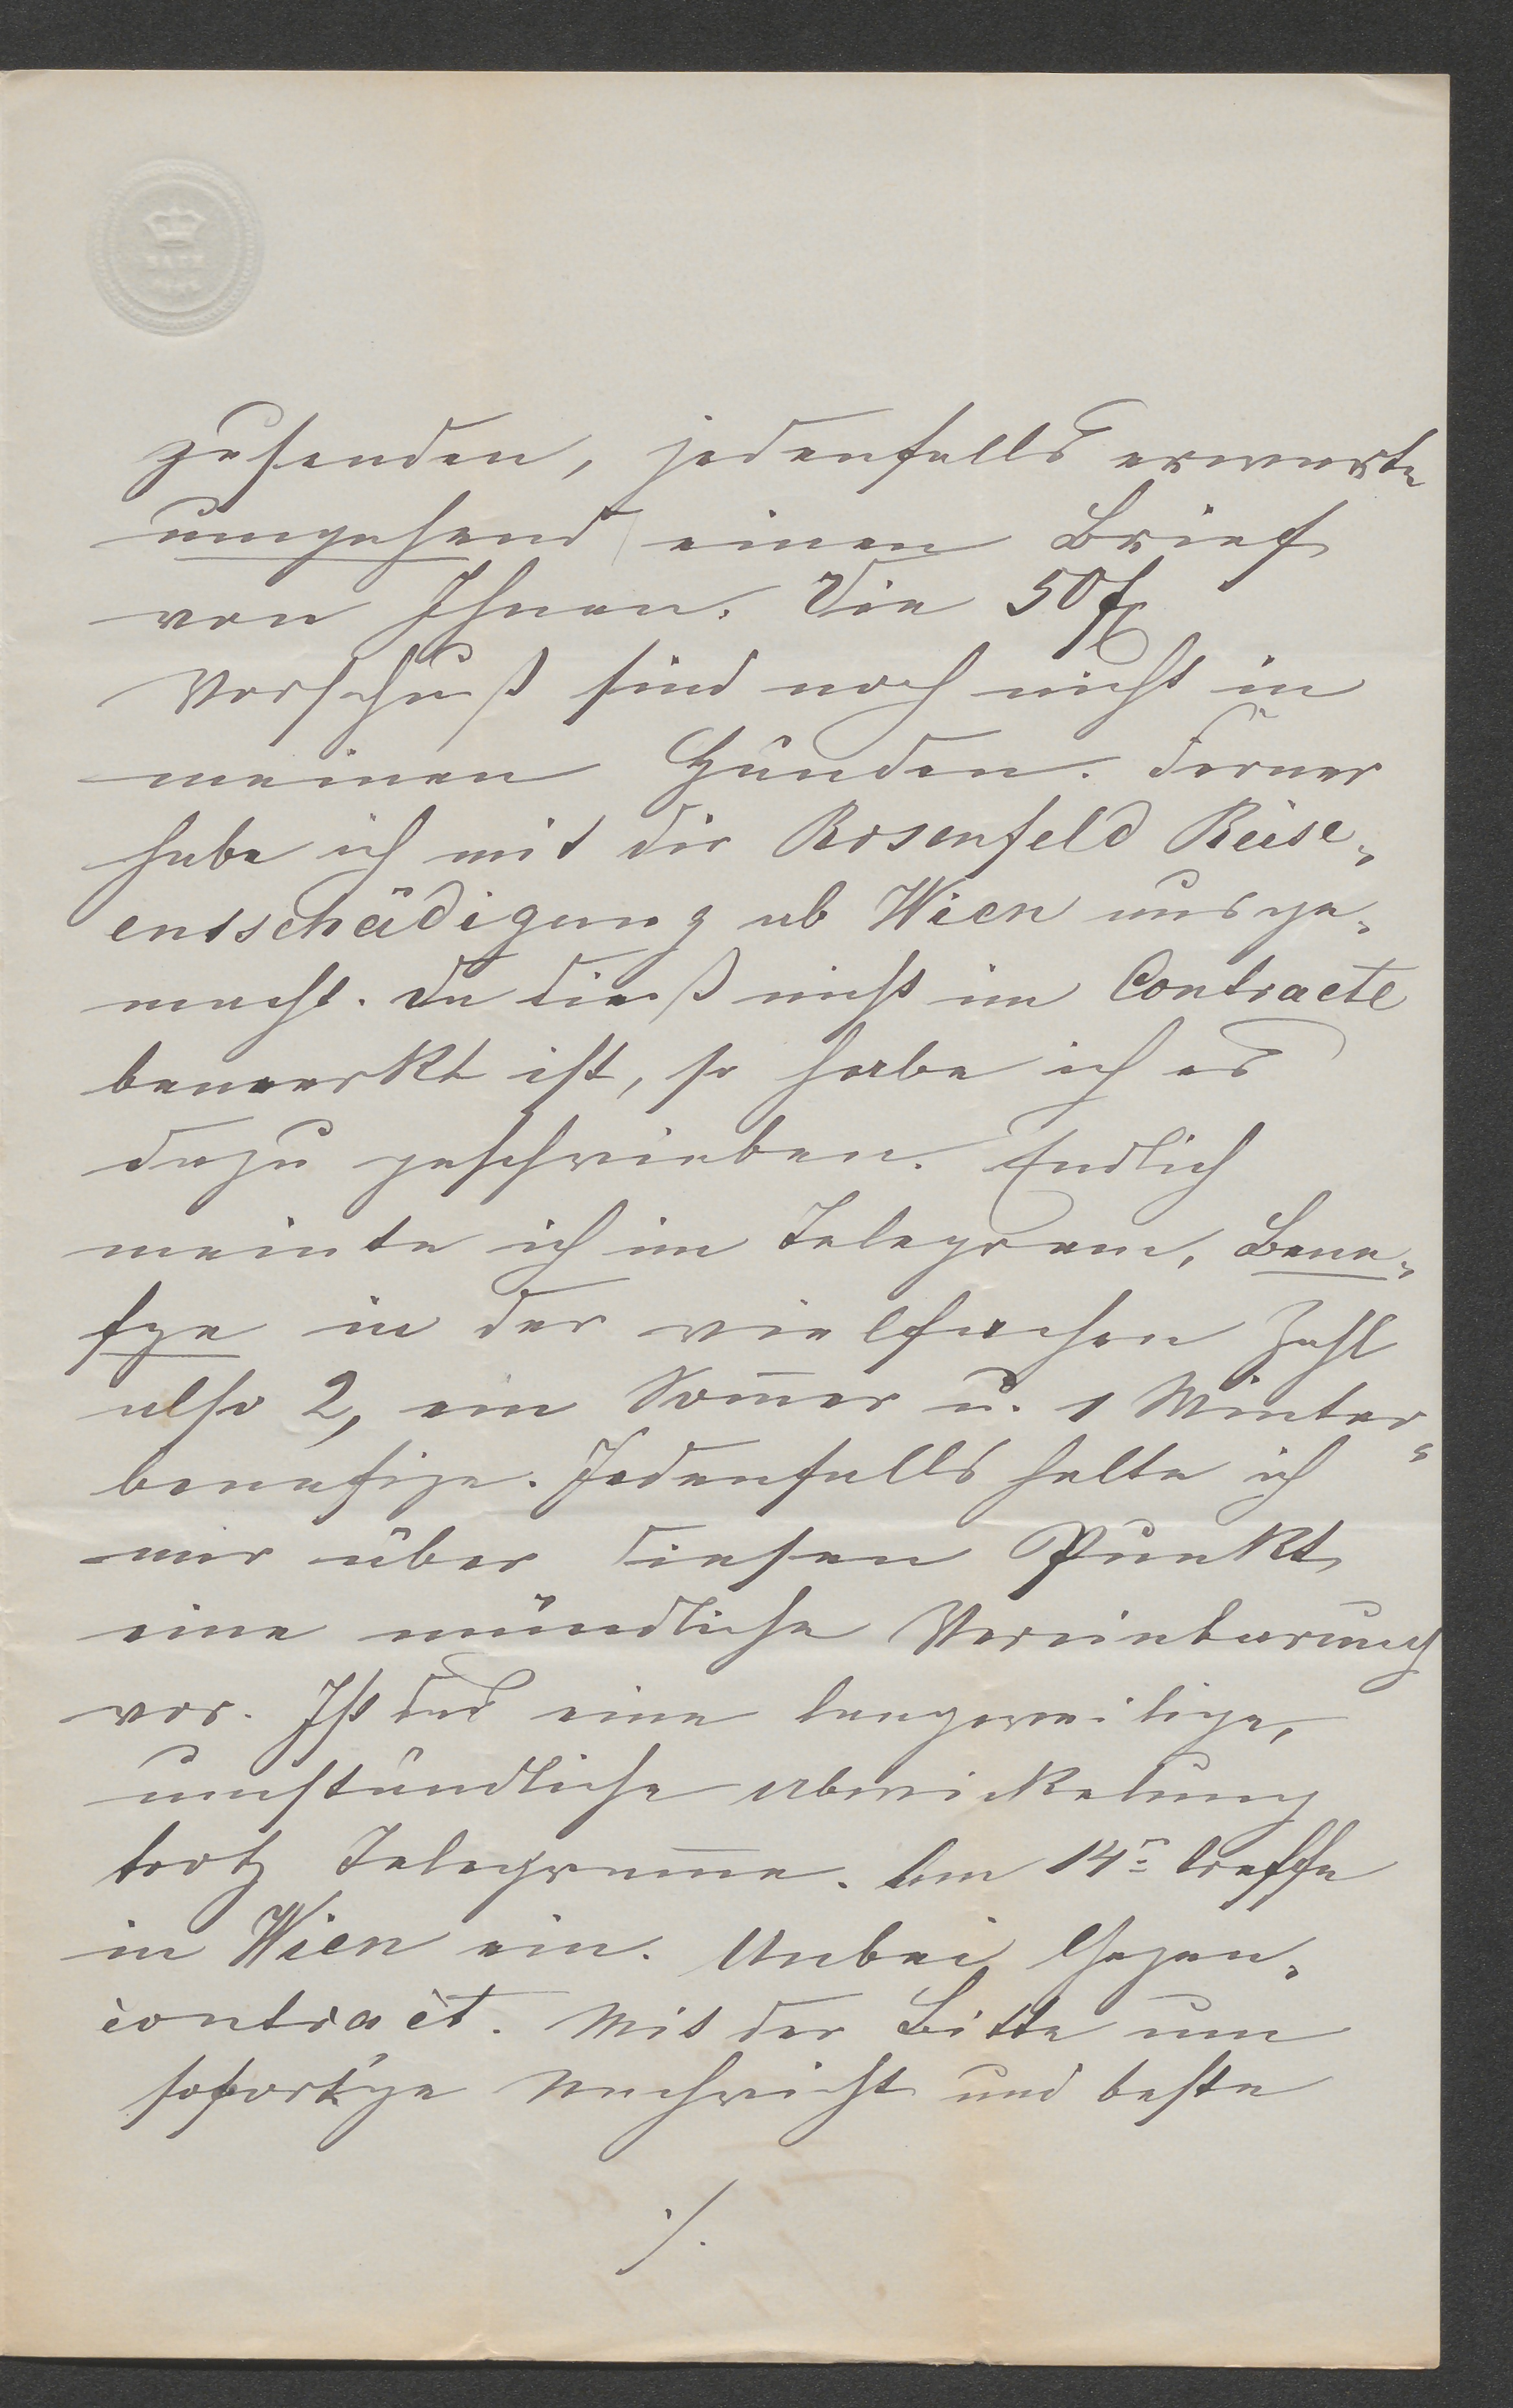 zusenden, jedenfalls erwarte
umgehend einen Brief
von Ihnen. Die 50 fl
Vorschuß sind noch nicht in
meinen Händen. Ferner
habe ich mit Dir Rosenfeld Reise-
entschädigung ab Wien ausge-
macht. Da dieß nicht im Contracte
bemerkt ist, so habe ich es
dazu geschrieben. Endlich
meinte ich im Telegram, Bene-
fize in der vielfachen Zahl
also 2, ein Som̄er u. 1 Winter-
benefize. Jedenfalls halte ich
mir über diesen Punkt
eine mündliche Vereinbarung
vor. Ist das eine langweilige,
umständliche Abwickelung
trotz Telegram̄e. Am 14n treffe
in Wien ein. Anbei Gegen-
contract. Mit der Bitte um
sofortige Nachricht und beste
./.